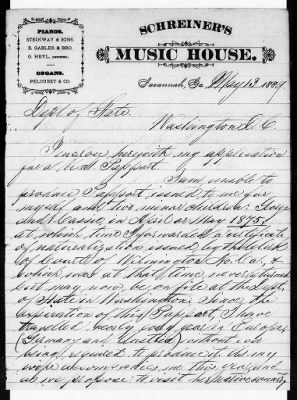 SCHREINER'S
MUSIC HOUSE.
PIANOS.
STEINWAY & SONS.
E. GABLER & BRO.
O. HEYL,
ORGANS.
PELOUBET & CO.
Savannah, Ga. May 13 1889
Dept of State.
Washington D. C.
I enclose herewith my application
for a U.S. Passport.
I am unable to
produce Passport issued to me for
myself and two minor children: George
and Cassie, in April or May 1875,
at which time I forwarded a certificate
of naturalization issued by the Clerk
of Court of Wilmington No. Car., &
which was at that time, never returned
but may now be on file at the Dept.
of State in Washington. Since the
expiration of this Passport, I have
travelled nearly every year in Europe,
(Germany an Austria) without ever
being required to produce it. As my
wife accompanies me this year, and
as we propose to visit her native country